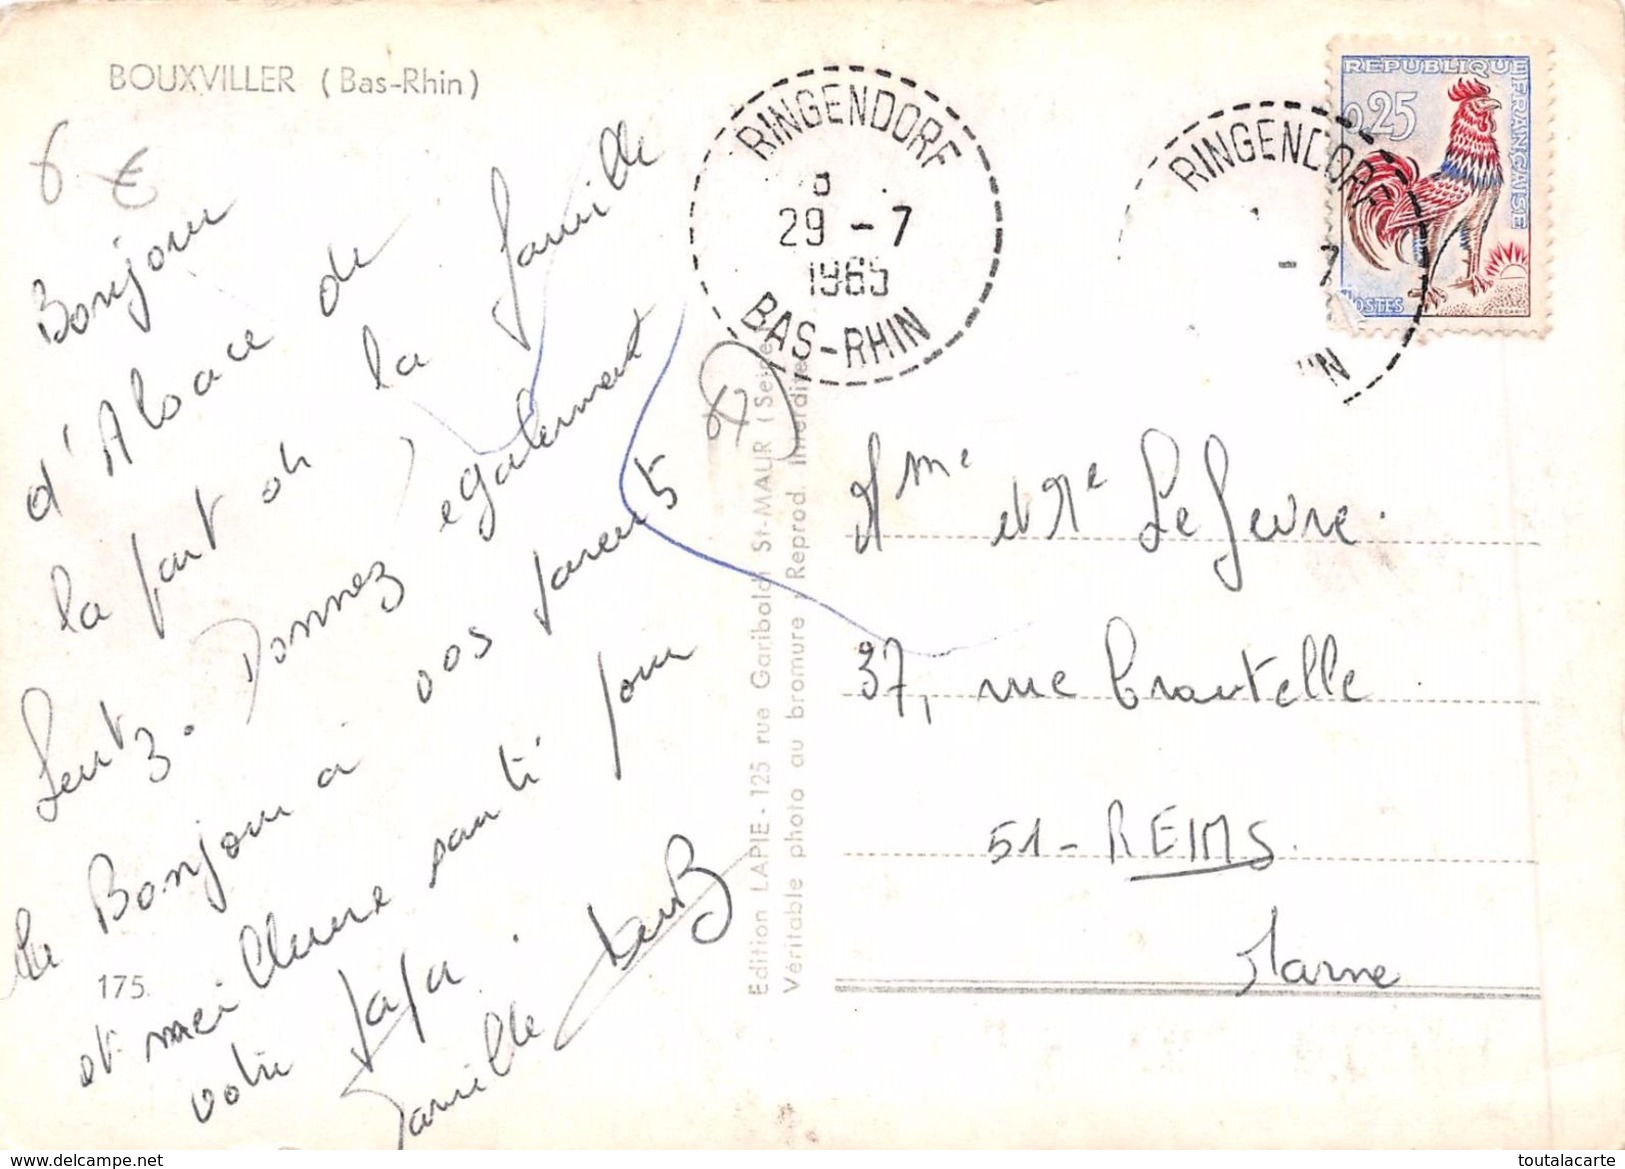 BOUXVILLER (Bas-Rhin)
6 €
Bonjour
d'Alsace de
la part de la famille
Lentz. Donnez également
le Bonjour à vos parents
et meilleure santé pour
votre papa.
Famille Lentz
175.
Edition LAPIE - 125 rue Garibaldi St-MAUR (Seine
Véritable photo au bromure Reprod. Interdite
RINGENDORF
29 -7
1965
BAS-RHIN
RINGENDORF
- 7
IN
REPUBLIQUE FRANÇAISE
0,25
POSTES
Mme et Mr Lefevre.
37, rue Crautelle
51 - REIMS.
Marne
www.delcampe.net
toutalacarte